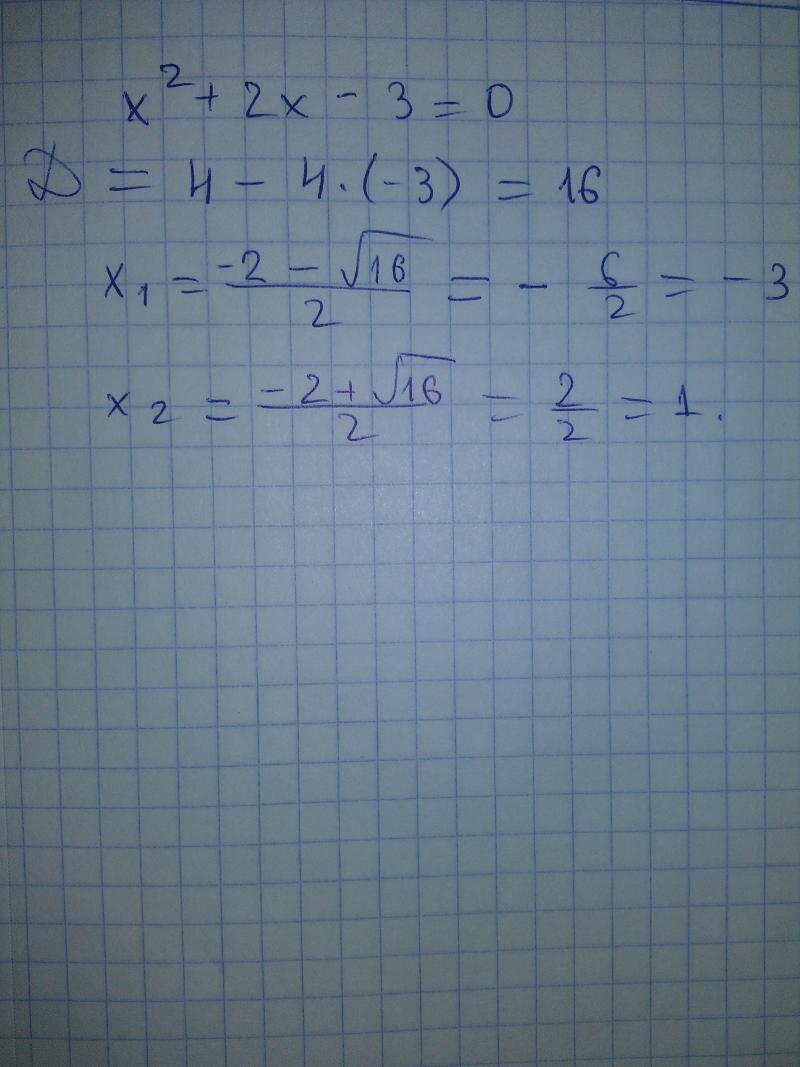 x² + 2x - 3 = 0
D = 4 - 4·(-3) = 16
x₁ = (-2 - √16)/2 = - 6/2 = -3
x₂ = (-2 + √16)/2 = 2/2 = 1.